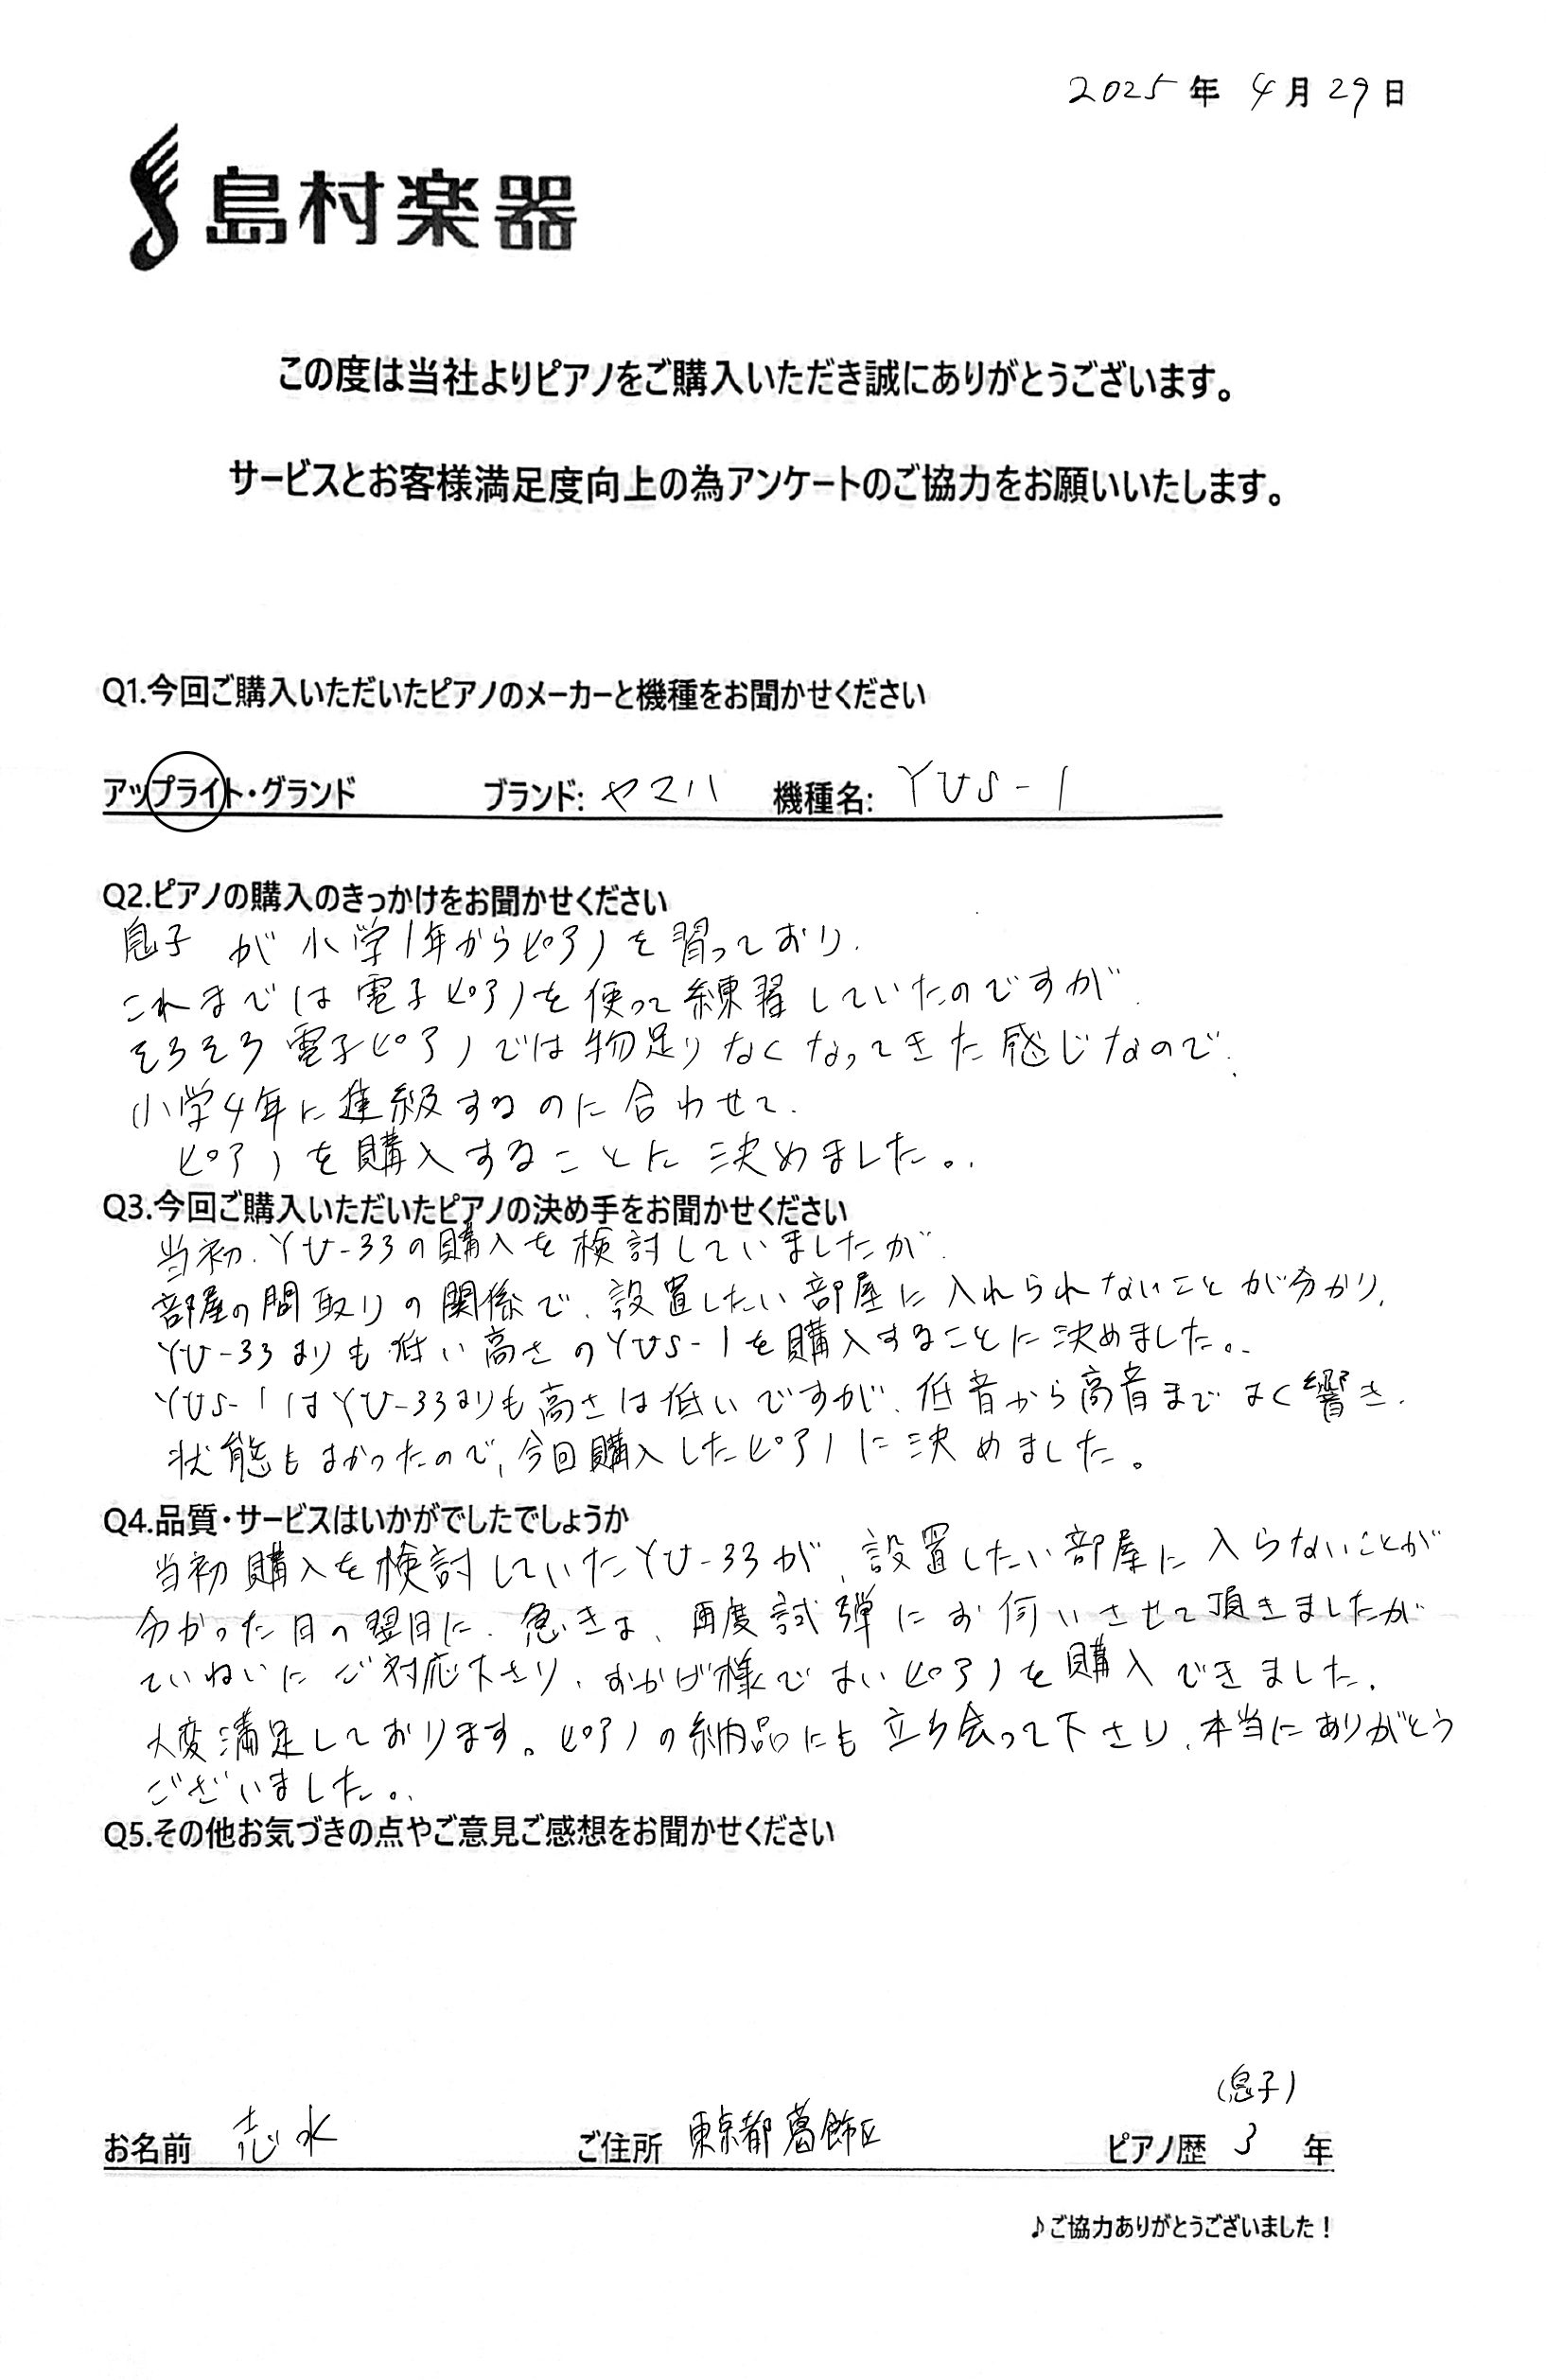 2025年 4月29日
島村楽器
この度は当社よりピアノをご購入いただき誠にありがとうございます。
サービスとお客様満足度向上の為アンケートのご協力をお願いいたします。
Q1.今回ご購入いただいたピアノのメーカーと機種をお聞かせください
アップライト・グランド ブランド: ヤマハ 機種名: YUS-1
Q2.ピアノの購入のきっかけをお聞かせください
息子が小学1年からピアノを習っており、
これまでは電子ピアノを使って練習していたのですが、
そろそろ電子ピアノでは物足りなくなってきた感じなので、
小学4年に進級するのに合わせて、
ピアノを購入することに決めました。
Q3.今回ご購入いただいたピアノの決め手をお聞かせください
当初、YU-33の購入を検討していましたが、
部屋の間取りの関係で、設置したい部屋に入れられないことが分かり、
YU-33よりも低い高さのYUS-1を購入することに決めました。
YUS-1はYU-33よりも高さは低いですが、低音から高音までよく響き、
状態もよかったので、今回購入したピアノに決めました。
Q4.品質・サービスはいかがでしたでしょうか
当初購入を検討していたYU-33が、設置したい部屋に入らないことが
分かった日の翌日に、急きょ、再度試弾にお伺いさせて頂きましたが
ていねいにご対応下さり、おかげ様でよいピアノを購入できました。
大変満足しております。ピアノの納品にも立ち会って下さり、本当にありがとう
ございました。
Q5.その他お気づきの点やご意見ご感想をお聞かせください
(息子)
お名前 志水 ご住所 東京都葛飾区 ピアノ歴 3 年
♪ご協力ありがとうございました！